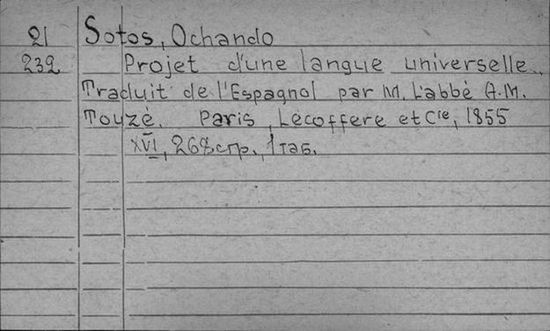 21 Sotos, Ochando
232 Projet d'une langue universelle..
Traduit de l'Espagnol par M. L'abbé A.M.
Touzé. Paris, Lecoffere et Cie, 1855
XVI, 268 стр., 1 таб.